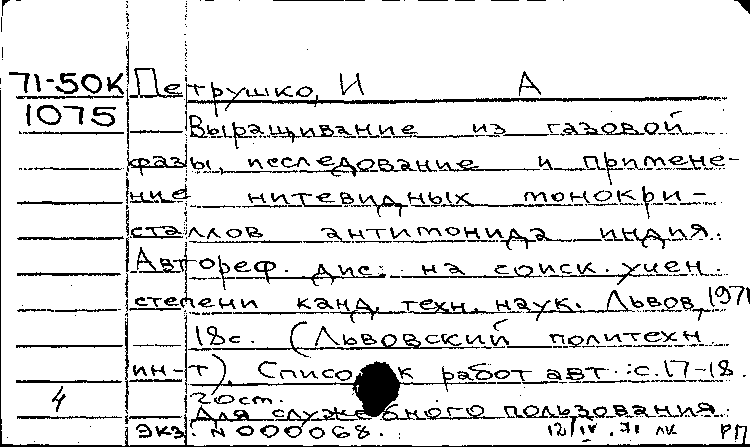 71-50К Петрушко, И А
1075
Выращивание из газовой
фазы, исследование и примене-
ние нитевидных монокри-
сталлов антимонида индия.
Автореф. дис. на соиск. учен.
степени канд. техн. наук. Львов, 1971
18с. (Львовский политехн
ин-т). Список работ авт.: с.17-18.
4 20ст.
Для служебного пользования.
экз. N 000068. 12/IV.71 лк РП